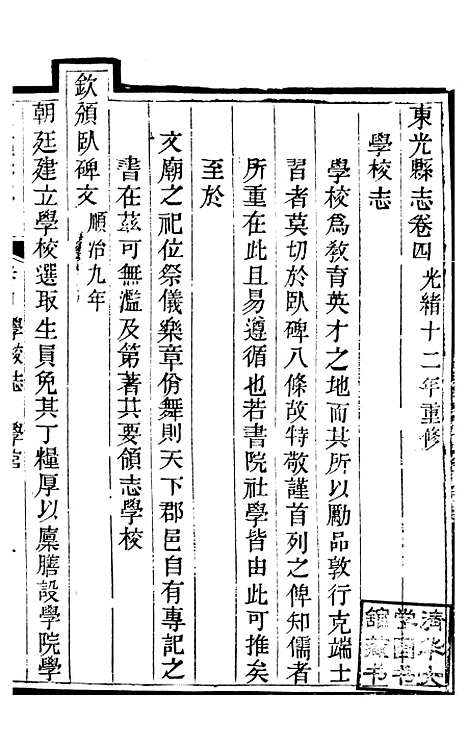 東光縣志卷四 光緒十二年重修
學校志
學校爲教育英才之地而其所以勵品敦行克端士
習者莫切於臥碑八條故特敬謹首列之俾知儒者
所重在此且易遵循也若書院社學皆由此可推矣
至於
文廟之祀位祭儀樂章佾舞則天下郡邑自有專記之
書在茲可無濫及第著其要領志學校
欽頒臥碑文 順治九年
朝廷建立學校選取生員免其丁糧厚以廩膳設學院學
學校志 學宮
清华大
学图书
馆藏书